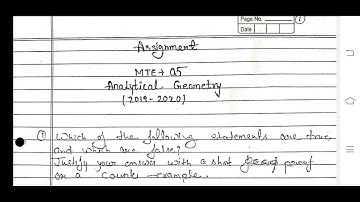 Page No. 1
Date
Assignment
MTE → 05
Analytical Geometry
(2019-2020)
① Which of the following statements are true,
and which are false?
Justify your answer with a shot proof
or a counter-example.